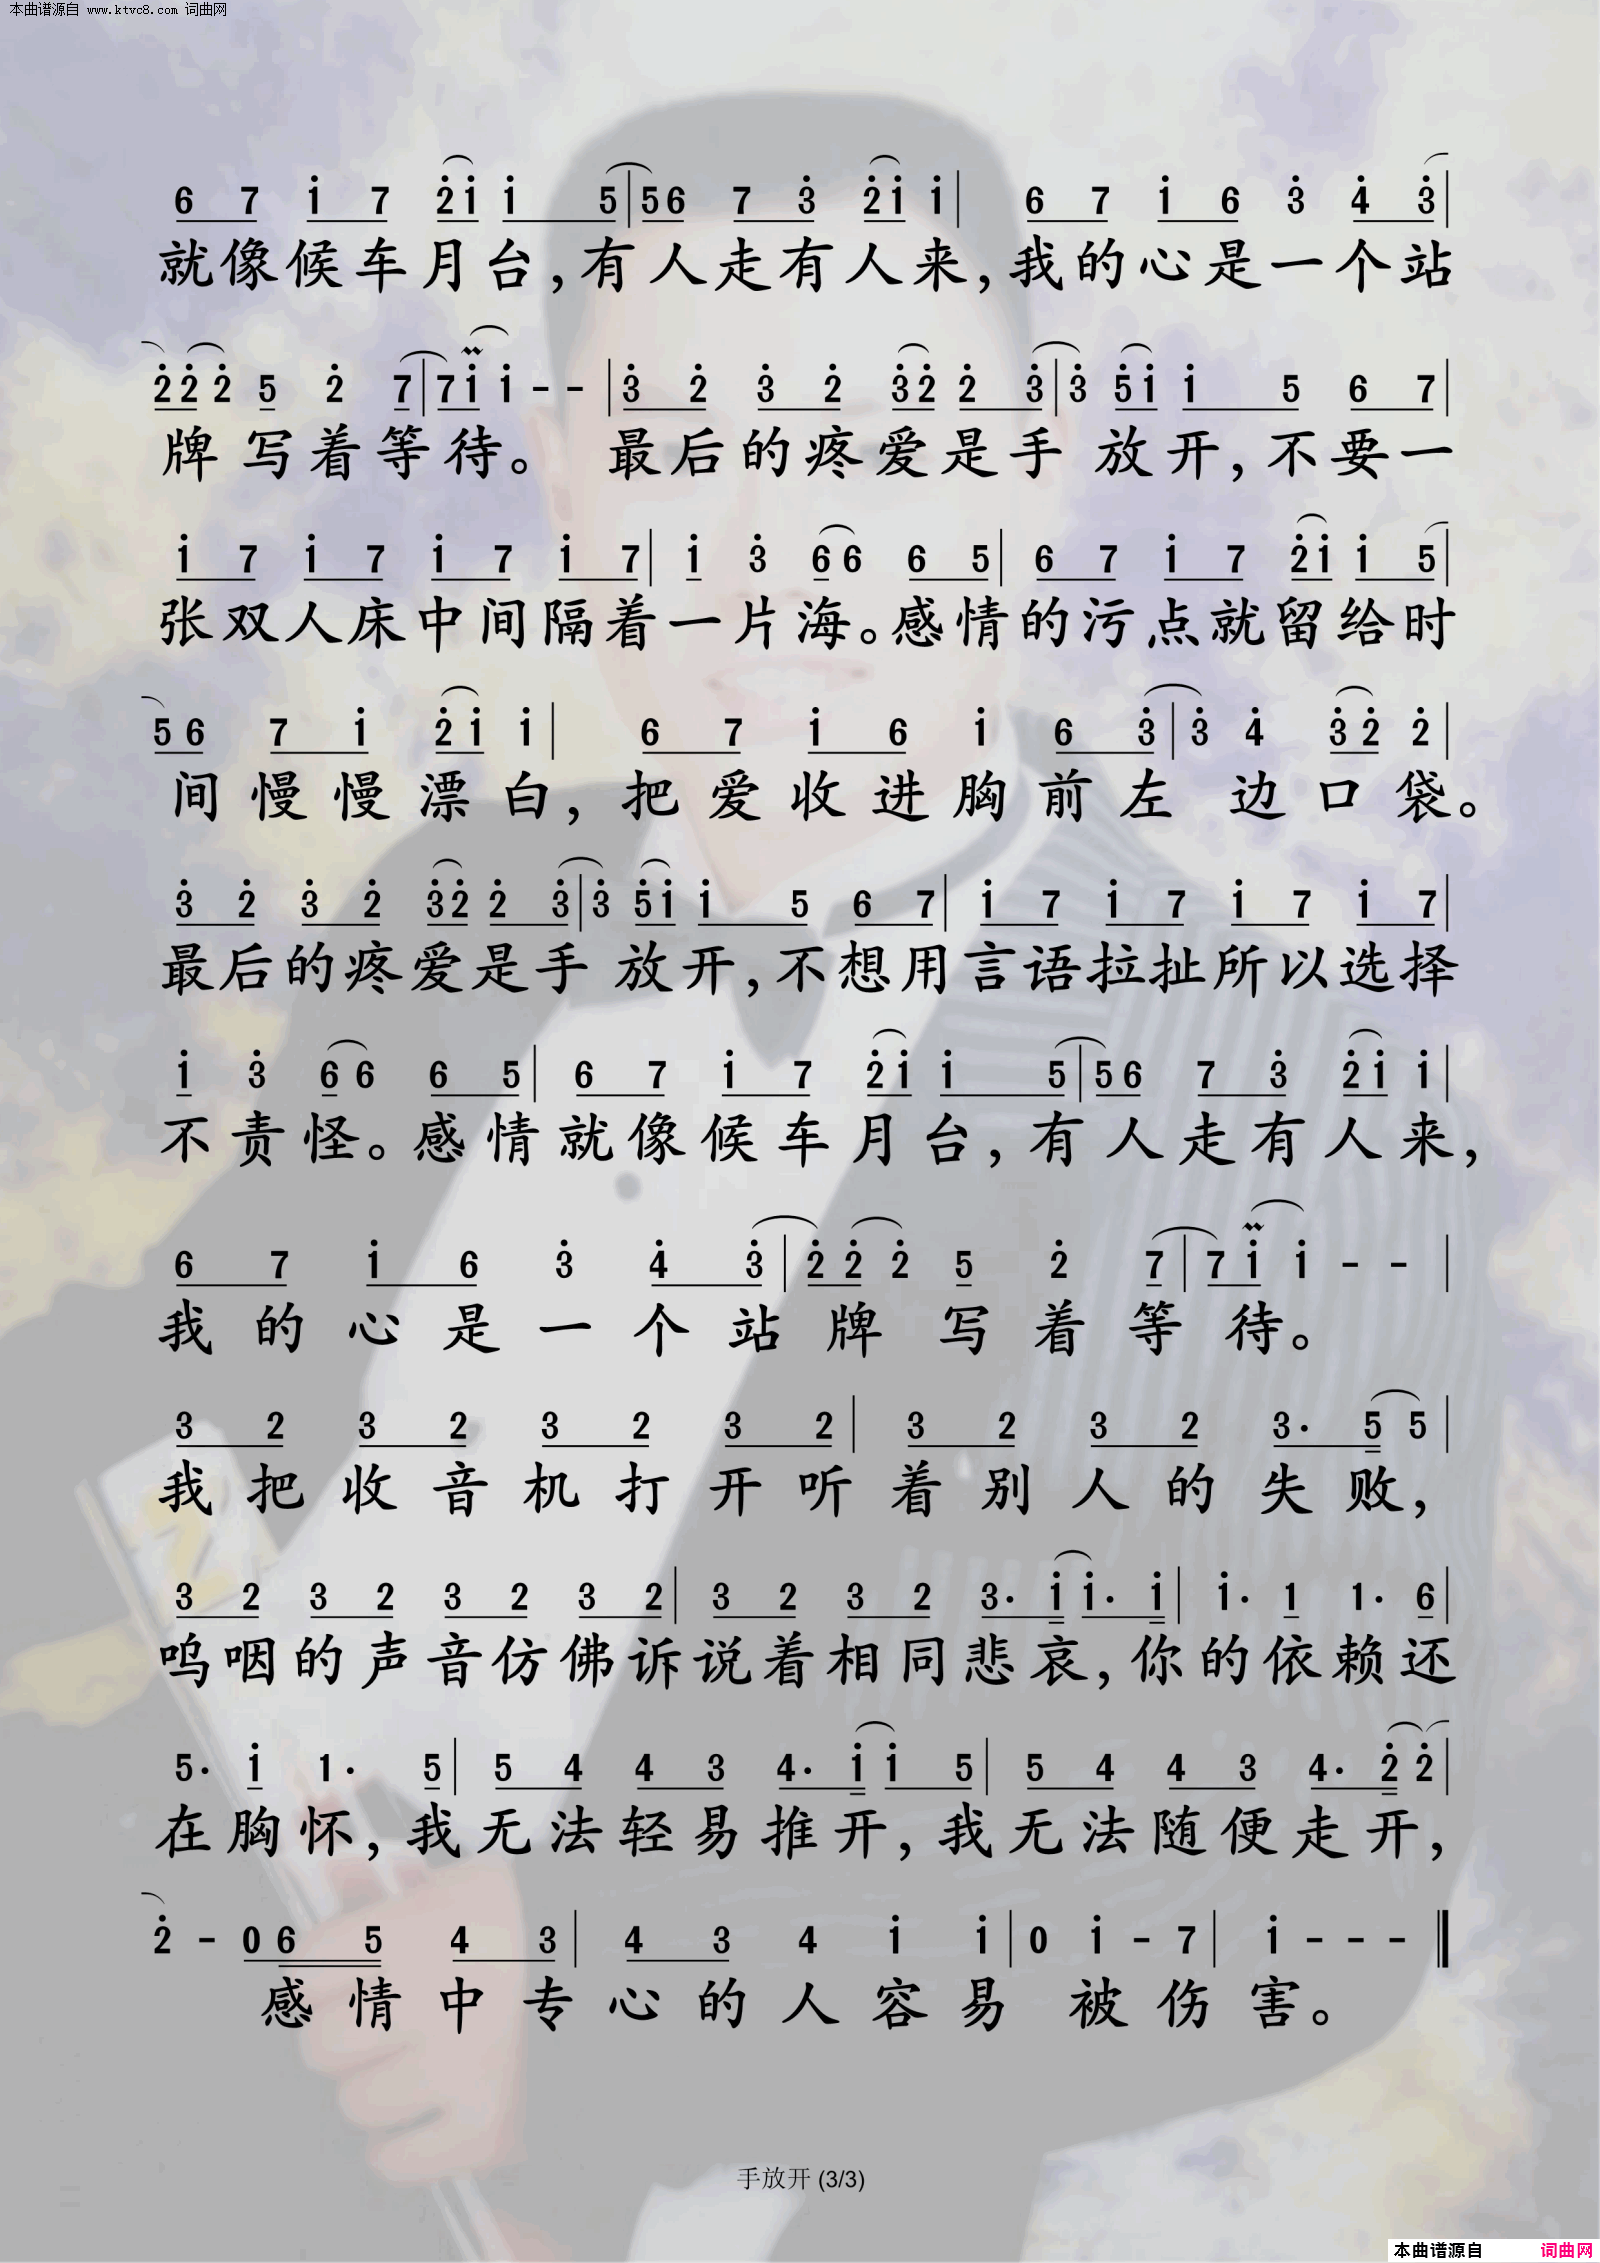 本曲谱源自 www.ktvc8.com 词曲网
6 7 1̇ 7 2̇1̇ 1̇ 5|56 7 3̇ 2̇1̇ 1̇| 6 7 1̇ 6 3̇ 4̇ 3̇|
就像候车月台,有人走有人来,我的心是一个站
2̇2̇2̇ 5 2̇ 7|71̇ 1̇ - -|3̇ 2̇ 3̇ 2̇ 3̇2̇ 2̇ 3̇|3̇ 5̇1̇ 1̇ 5 6 7|
牌写着等待。 最后的疼爱是手 放开,不要一
1̇ 7 1̇ 7 1̇ 7 1̇ 7| 1̇ 3̇ 66 6 5| 6 7 1̇ 7 2̇1̇ 1̇ 5|
张双人床中间隔着一片海。感情的污点就留给时
56 7 1̇ 2̇1̇ 1̇| 6 7 1̇ 6 1̇ 6 3̇|3̇ 4̇ 3̇2̇ 2̇|
间慢慢漂白,把爱收进胸前左 边口袋。
3̇ 2̇ 3̇ 2̇ 3̇2̇ 2̇ 3̇|3̇ 5̇1̇ 1̇ 5 6 7| 1̇ 7 1̇ 7 1̇ 7 1̇ 7|
最后的疼爱是手 放开,不想用言语拉扯所以选择
1̇ 3̇ 66 6 5| 6 7 1̇ 7 2̇1̇ 1̇ 5|56 7 3̇ 2̇1̇ 1̇|
不责怪。感情就像候车月台,有人走有人来,
6 7 1̇ 6 3̇ 4̇ 3̇|2̇2̇2̇ 5 2̇ 7|71̇ 1̇ - -|
我的心是一个站牌写着等待。
3 2 3 2 3 2 3 2| 3 2 3 2 3· 5 5|
我把收音机打开听着别人的失败,
3 2 3 2 3 2 3 2| 3 2 3 2 3· 1̇1̇· 1̇| 1̇· 1 1· 6|
呜咽的声音仿佛诉说着相同悲哀,你的依赖还
5· 1̇ 1· 5| 5 4 4 3 4· 1̇1̇ 5| 5 4 4 3 4· 2̇2̇|
在胸怀,我无法轻易推开,我无法随便走开,
2̇ - 06 5 4 3| 4 3 4 1̇ 1̇|0 1̇ - 7| 1̇ - - -‖
感情中专心的人容易 被伤害。
手放开 (3/3)
本曲谱源自 词曲网